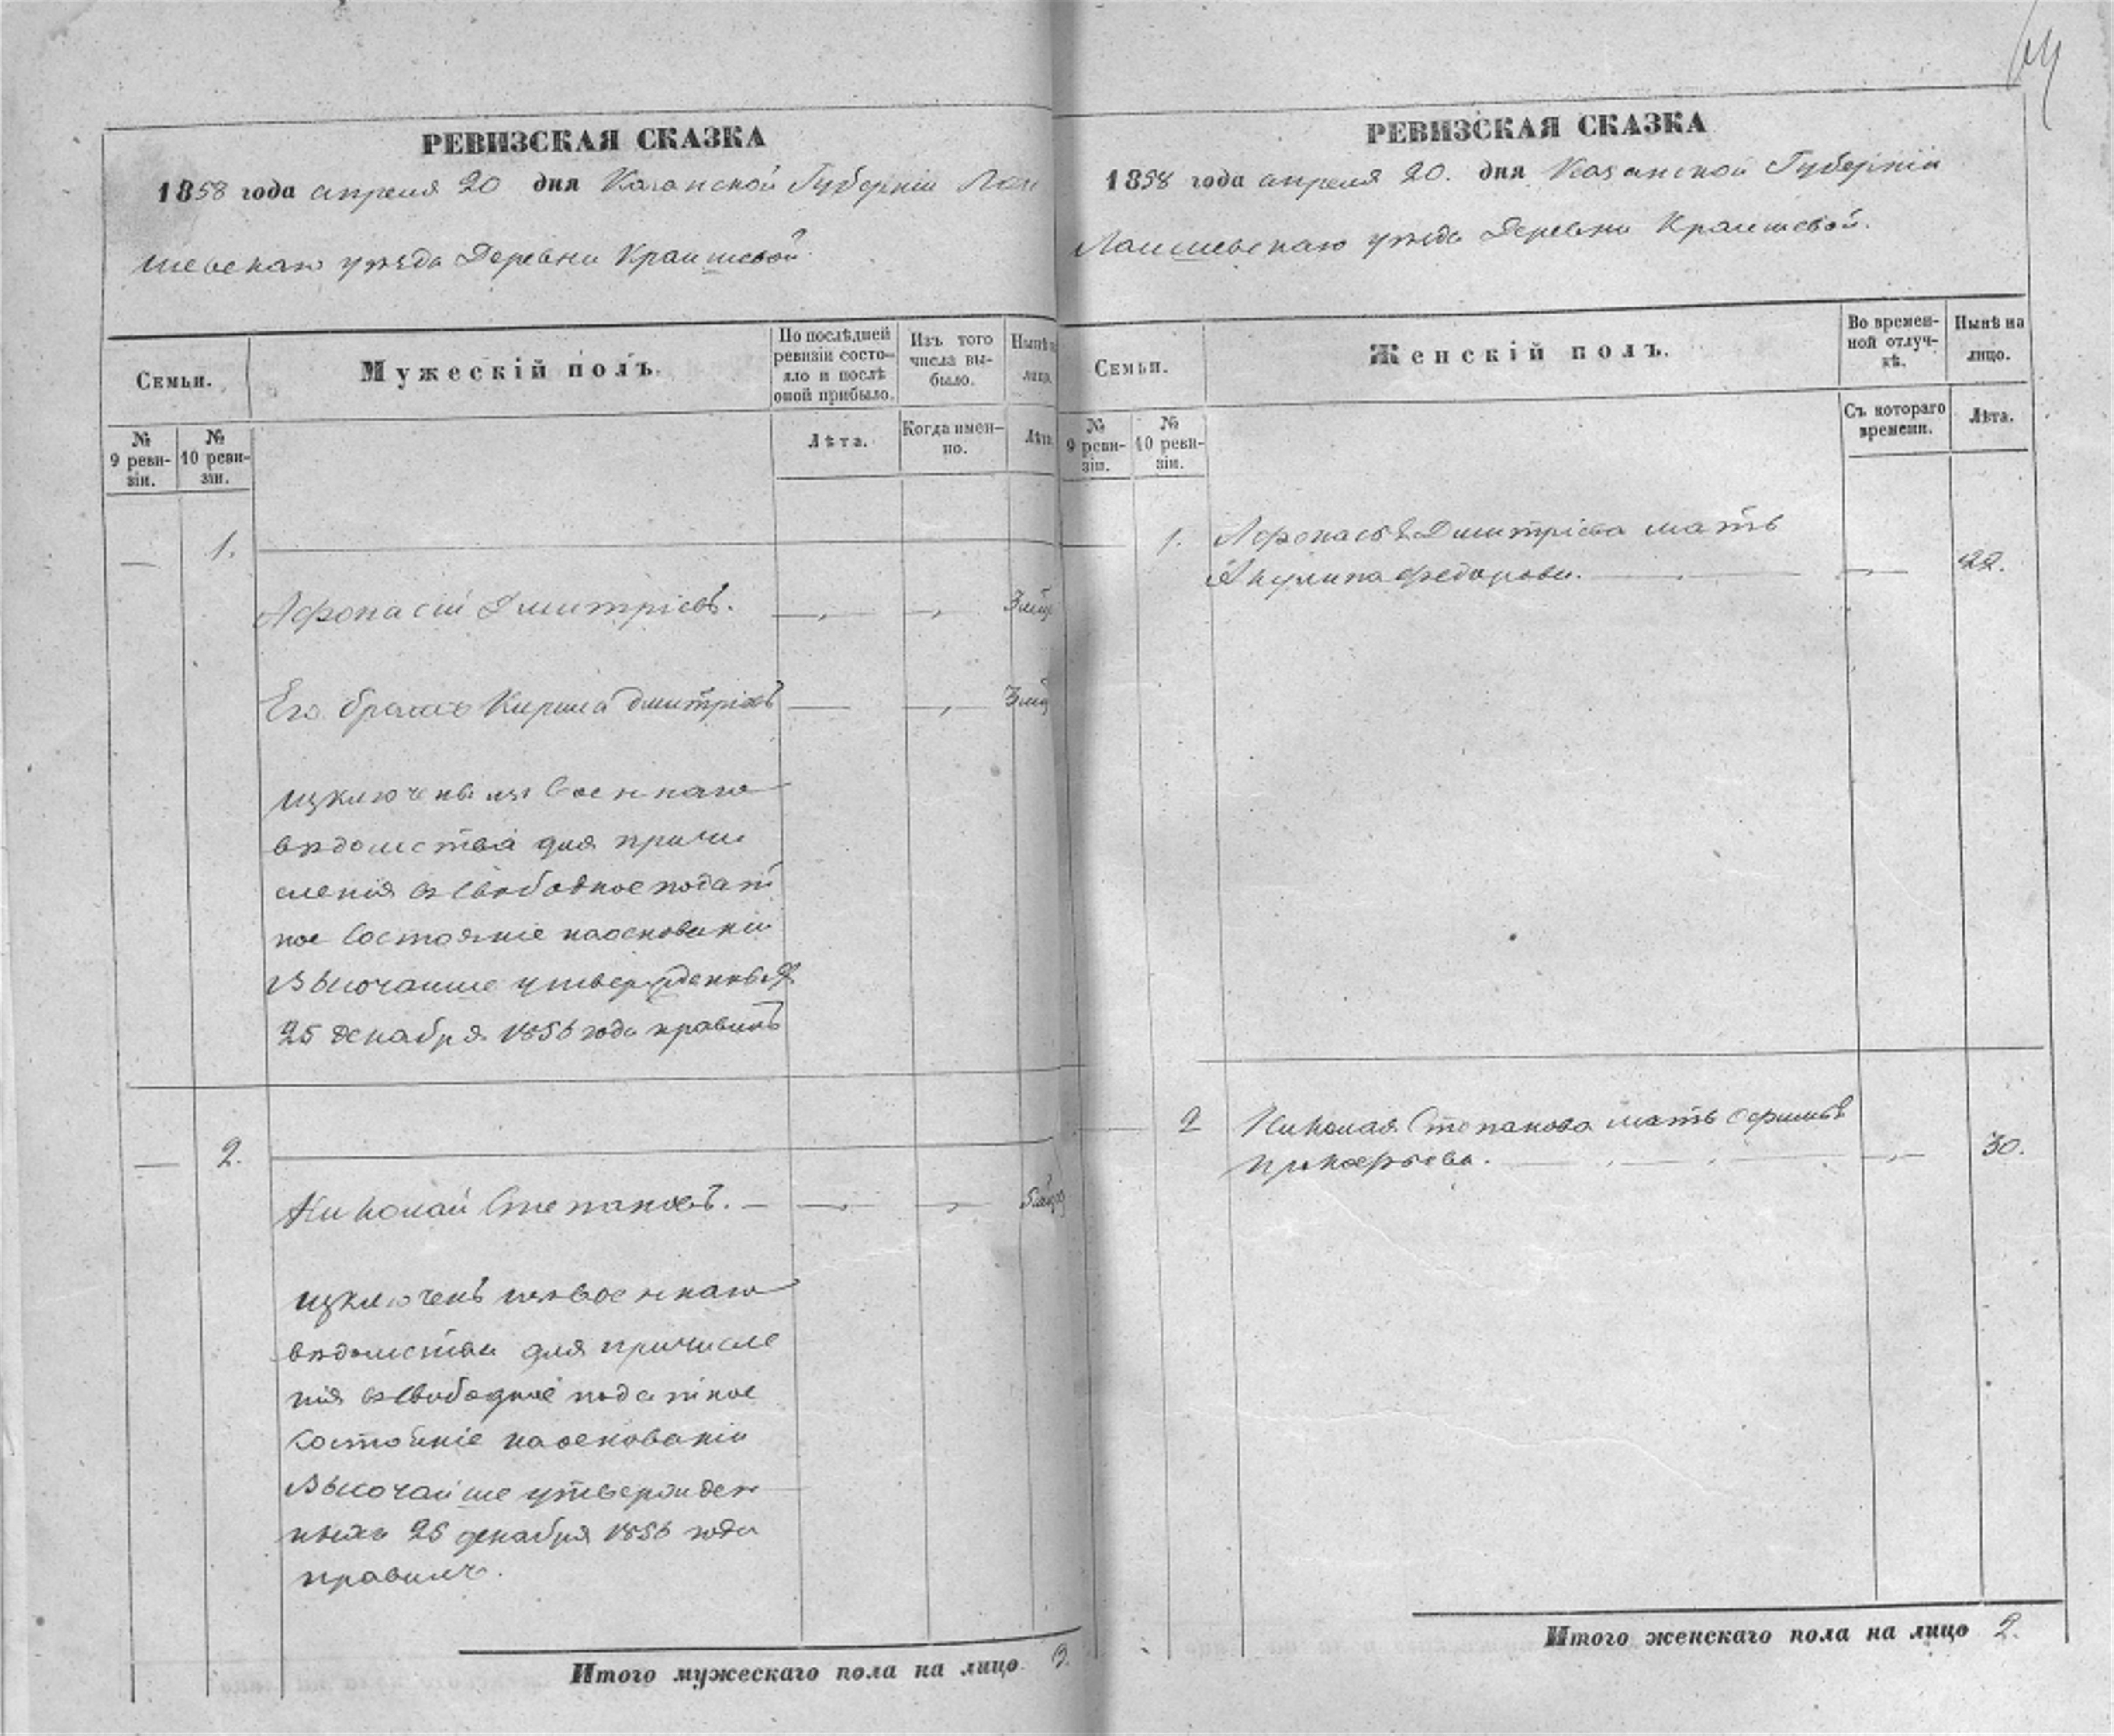 РЕВИЗСКАЯ СКАЗКА
1858 года апреля 20 дня Казанской Губерніи Лаи
шевскаго уѣзда Деревни Краишевой
Семьи.
Мужескій полъ.
По послѣдней
ревизіи состо-
яло и послѣ
оной прибыло.
Изъ того
числа вы-
было.
Нынѣ
лицо.
№
9 реви-
зіи.
№
10 реви-
зіи.
Лѣта.
Когда имен-
но.
Лѣта
1.
Афонасій Дмитріевъ.
Его братъ Кирила Дмитріевъ
изключены изъ военнаго
вѣдомства для причи
сленія въ свободное подат
ное состояніе наоснованіи
Высочайше утвержденныхъ
25 декабря 1856 года правилъ
2.
Николай Степановъ.
изключенъ изъ военнаго
вѣдомства для причисле
нія въ свободное податное
состояніе наоснованіи
Высочайше утвержден
ныхъ 25 декабря 1856 года
правилъ.
Итого мужескаго пола на лицо 3.
РЕВИЗСКАЯ СКАЗКА
1858 года апреля 20. дня Казанской Губерніи
Лаишевскаго уѣзда Деревни Краишевой.
Семьи.
Женскій полъ.
Во времен-
ной отлуч-
кѣ.
Нынѣ на
лицо.
№
9 реви-
зіи.
№
10 реви-
зіи.
Съ котораго
времени.
Лѣта.
1. Афонасья Дмитріева мать
Акулина Федорова. 22.
2 Николая Степанова мать Офимья
Прокофьева. 30.
Итого женскаго пола на лицо 2.